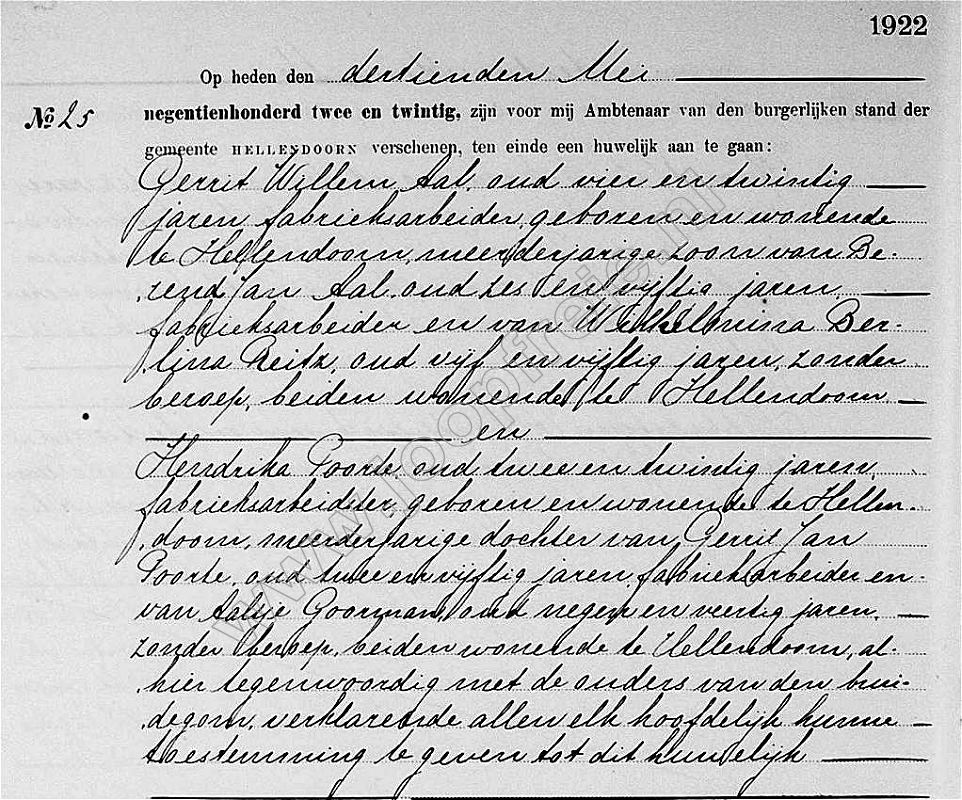 1922
Op heden den dertienden Mei
No 25 negentienhonderd twee en twintig, zijn voor mij Ambtenaar van den burgerlijken stand der
gemeente HELLENDOORN verschenen, ten einde een huwelijk aan te gaan:
Gerrit Willem Aal, oud vier en twintig
jaren, fabrieksarbeider, geboren en wonende
te Hellendoorn, meerderjarige zoon van Be-
rend Jan Aal, oud zes en vijftig jaren,
fabrieksarbeider en van Wilhelmina Ber-
lina Reitz, oud vijf en vijftig jaren, zonder
beroep, beiden wonende te Hellendoorn
en
Hendrika Poorte, oud twee en twintig jaren,
fabrieksarbeidster, geboren en wonende te Hellen-
doorn, meerderjarige dochter van Gerrit Jan
Poorte, oud twee en vijftig jaren, fabrieksarbeider en
van Aaltje Goorman, oud negen en veertig jaren,
zonder beroep, beiden wonende te Hellendoorn, al-
hier tegenwoordig met de ouders van den brui-
degom, verklarende allen elk hoofdelijk hunne
toestemming te geven tot dit huwelijk
www.joopfreie.nl